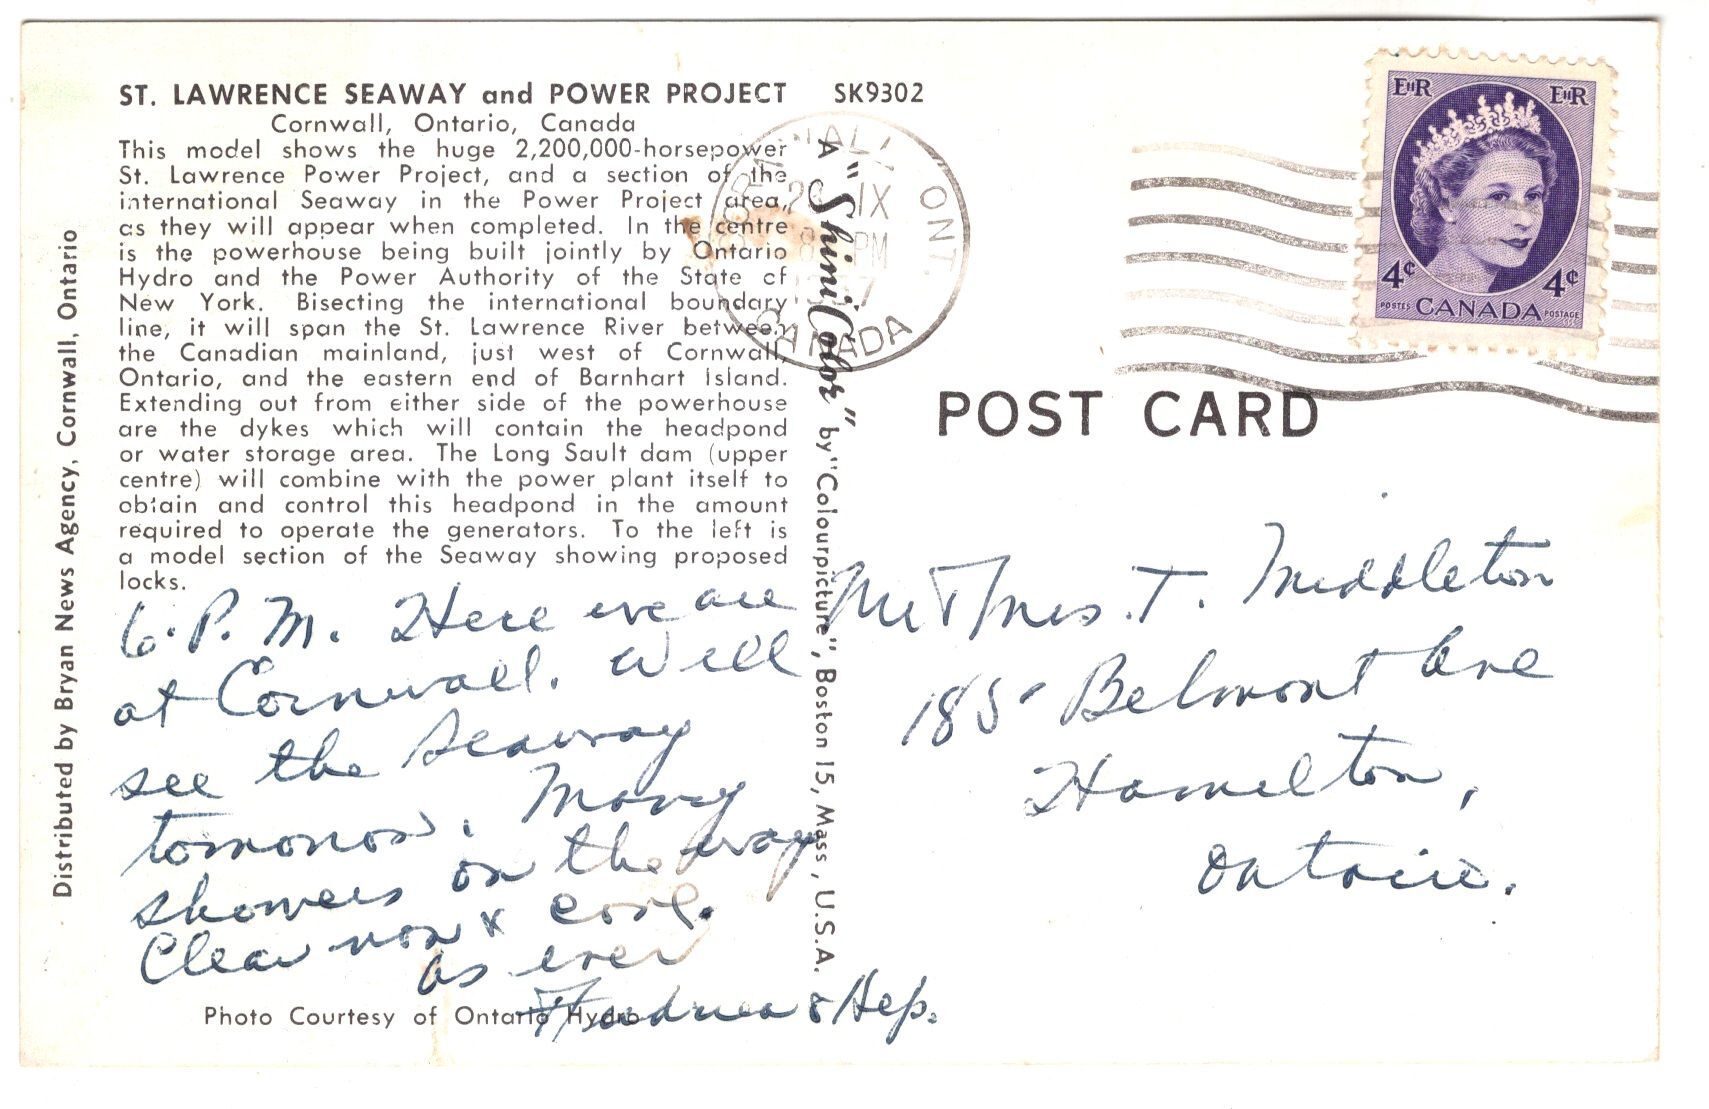 ST. LAWRENCE SEAWAY and POWER PROJECT SK9302
Cornwall, Ontario, Canada
This model shows the huge 2,200,000-horsepower
St. Lawrence Power Project, and a section of the
international Seaway in the Power Project area,
as they will appear when completed. In the centre
is the powerhouse being built jointly by Ontario
Hydro and the Power Authority of the State of
New York. Bisecting the international boundary
line, it will span the St. Lawrence River between
the Canadian mainland, just west of Cornwall,
Ontario, and the eastern end of Barnhart Island.
Extending out from either side of the powerhouse
are the dykes which will contain the headpond
or water storage area. The Long Sault dam (upper
centre) will combine with the power plant itself to
obtain and control this headpond in the amount
required to operate the generators. To the left is
a model section of the Seaway showing proposed
locks.
6. P. M. Here we are
at Cornwall. Will
see the Seaway
tomorrow. Many
showers on the way
Clear now & cool.
as ever
& Hep.
Photo Courtesy of Ontario Hydro
Distributed by Bryan News Agency, Cornwall, Ontario
A "Shini Color" by "Colourpicture", Boston 15, Mass., U.S.A.
CORNWALL ONT.
IX
PM
CANADA
EIIR EIIR
4¢ 4¢
POSTES CANADA POSTAGE
POST CARD
Mr & Mrs. T. Middleton
185 Belmont Ave
Hamilton,
Ontario.